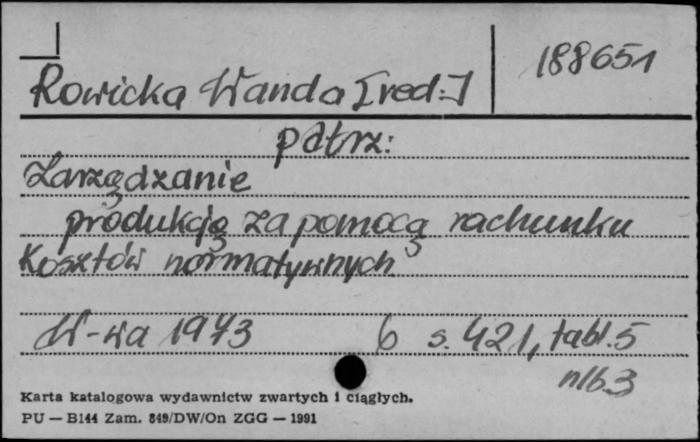 188651
Rowicka Wanda [red.]
patrz:
Zarządzanie
produkcją za pomocą rachunku
kosztów normatywnych
W-wa 1973 6 s. 421, tabl. 5
nlb. 3
Karta katalogowa wydawnictw zwartych i ciągłych.
PU — B144 Zam. 849/DW/On ZGG — 1991